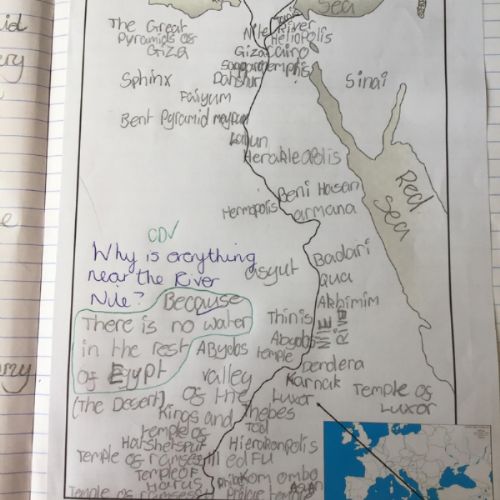 Sea
The Great
Pyramids of
Giza
Nile River
Heliopolis
Giza Cairo
Memphis
Dahshur
Sphinx
Sinai
Faiyum
Bent Pyramid
Herakleopolis
Red
Sea
Beni Hasan
Hermopolis
armana
CDV
Why is everything
near the River
Nile? Because
There is no water
in the rest
of Egypt
(The Desert)
asyut
Badari
Qua
Akhimim
Thinis
Nile
River
Abydos
Abydos
temple
Dendera
Valley
of the
Kings and
Karnak
Luxor
Temple of
Luxor
Thebes
Temple of
Hatshepsut
Tod
Hierakonpolis
Temple of ramses III
edfu
Temple of
Horus
Kom ombo
Temple of ramses